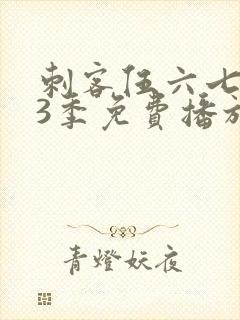 刺客伍六七
3季免費播放
青燈妖夜